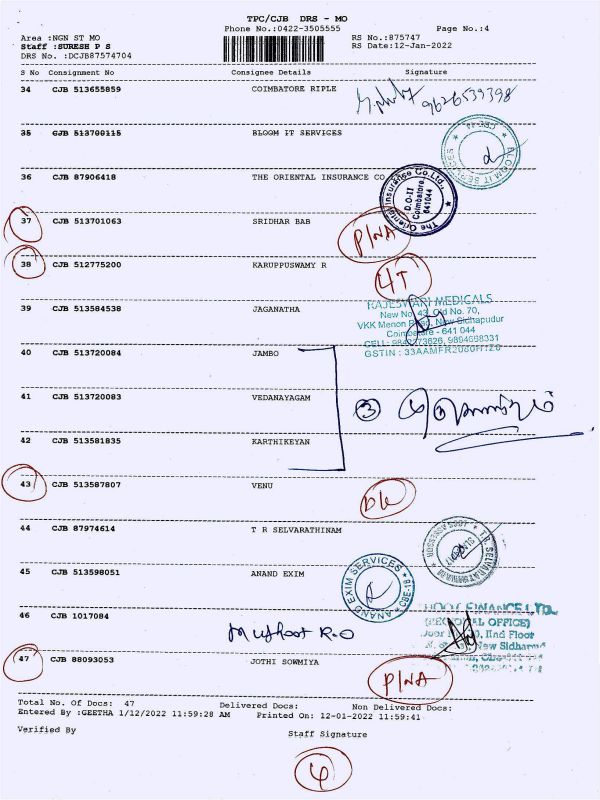 TPC/CJB DRS - MO
Phone No.:0422-3505555 Page No.:4
Area :NGN ST MO RS No.:875747
Staff :SURESH P S RS Date:12-Jan-2022
DRS No. :DCJB87574704
S No Consignment No Consignee Details Signature
34 CJB 513655859 COIMBATORE RIPLE 9626539398
35 CJB 513700115 BLOOM IT SERVICES
BLOOM IT SERVICES CBE-44
36 CJB 87906418 THE ORIENTAL INSURANCE CO
The Oriental Insurance Co.Ltd.,
D.O-II
Coimbatore
641044
37 CJB 513701063 SRIDHAR BAB P/NA
38 CJB 512775200 KARUPPUSWAMY R 4T
39 CJB 513584538 JAGANATHA
RAJESWARI MEDICALS
New No. 43, Old No. 70,
VKK Menon Road, New Sidhapudur
Coimbatore - 641 044
CELL: 9842373626, 9894698331
GSTIN : 33AAMFR2060H1Z0
40 CJB 513720084 JAMBO
41 CJB 513720083 VEDANAYAGAM 3
42 CJB 513581835 KARTHIKEYAN
43 CJB 513587807 VENU DL
44 CJB 87974614 T R SELVARATHINAM
45 CJB 513598051 ANAND EXIM
ANAND EXIM SERVICES CBE-18
46 CJB 1017084 Muthoot R.O
FINANCE LTD
(REGIONAL OFFICE)
Door IInd Floor
New Sidhapud
47 CJB 88093053 JOTHI SOWMIYA P/NA
Total No. Of Docs: 47 Delivered Docs: Non Delivered Docs:
Entered By :GEETHA 1/12/2022 11:59:28 AM Printed On: 12-01-2022 11:59:41
Verified By Staff Signature
4